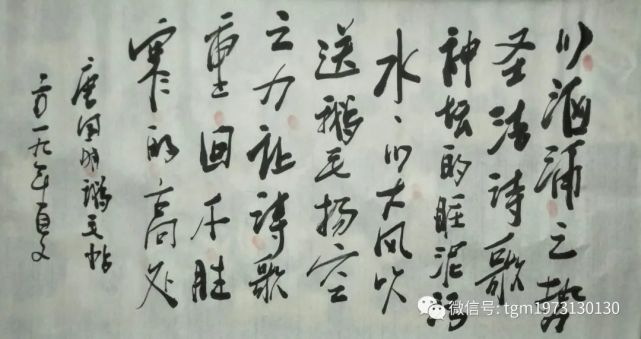 以汹涌之势
圣洁诗歌
神坛的脏泥污
水、以大风吹
送鹅毛扬空
之力让诗歌
重回不胜
寒的高处
唐国明鹅毛帖
一九年
微信号: tgm1973130130